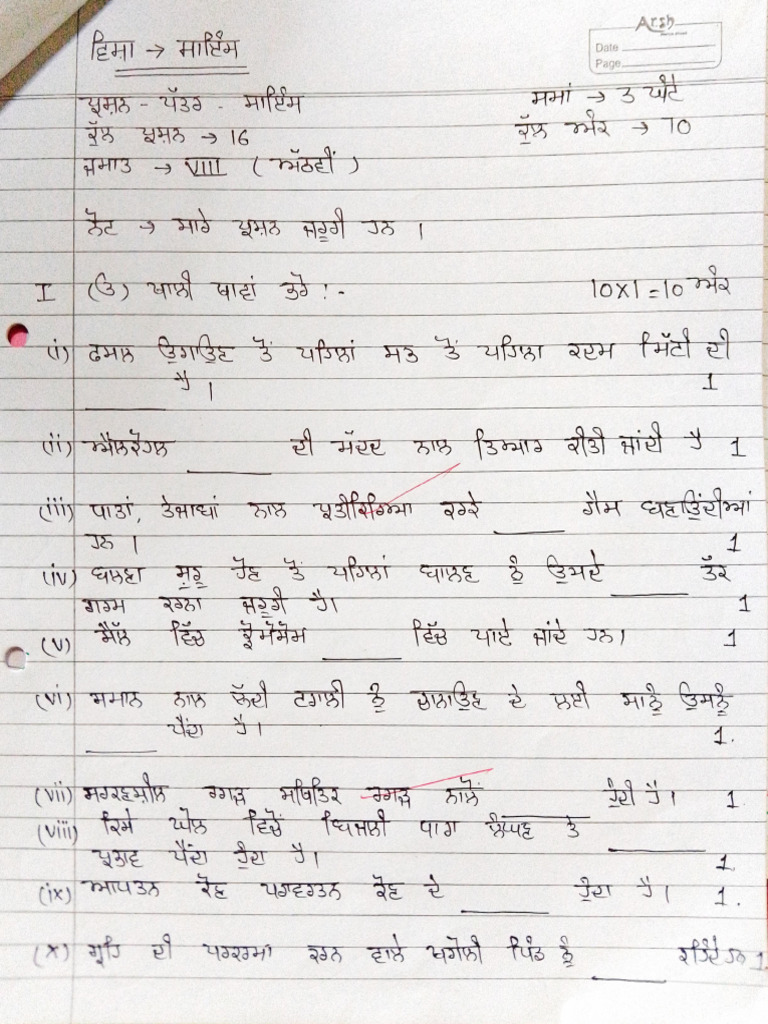 Arsh
Date
Page
ਵਿਸ਼ਾ → ਸਾਇੰਸ
ਪ੍ਰਸ਼ਨ - ਪੱਤਰ - ਸਾਇੰਸ ਸਮਾਂ → 3 ਘੰਟੇ
ਕੁੱਲ ਪ੍ਰਸ਼ਨ → 16 ਕੁੱਲ ਅੰਕ → 70
ਜਮਾਤ → VIII ( ਅੱਠਵੀਂ )
ਨੋਟ → ਸਾਰੇ ਪ੍ਰਸ਼ਨ ਜ਼ਰੂਰੀ ਹਨ ।
I (ੳ) ਖਾਲੀ ਥਾਵਾਂ ਭਰੋ ! - 10×1=10 ਅੰਕ
(i) ਫਸਲ ਉਗਾਉਣ ਤੋਂ ਪਹਿਲਾਂ ਸਭ ਤੋਂ ਪਹਿਲਾ ਕਦਮ ਮਿੱਟੀ ਦੀ
______ ਹੈ । 1
(ii) ਐਲਕੋਹਲ ______ ਦੀ ਮੱਦਦ ਨਾਲ ਤਿਆਰ ਕੀਤੀ ਜਾਂਦੀ ਹੈ 1
(iii) ਧਾਤਾਂ, ਤੇਜਾਬਾਂ ਨਾਲ ਪ੍ਰਤੀਕਿਰਿਆ ਕਰਕੇ ______ ਗੈਸ ਬਣਾਉਂਦੀਆਂ
ਹਨ । 1
(iv) ਬਲਣਾ ਸ਼ੁਰੂ ਹੋਣ ਤੋਂ ਪਹਿਲਾਂ ਬਾਲਣ ਨੂੰ ਉਸਦੇ ______ ਤੱਕ
ਗਰਮ ਕਰਨਾ ਜ਼ਰੂਰੀ ਹੈ। 1
(v) ਸੈੱਲ ਵਿੱਚ ਕ੍ਰੋਮੋਸੋਮ ______ ਵਿੱਚ ਪਾਏ ਜਾਂਦੇ ਹਨ। 1
(vi) ਸਮਾਨ ਨਾਲ ਲੱਦੀ ਟਰਾਲੀ ਨੂੰ ਚਲਾਉਣ ਦੇ ਲਈ ਸਾਨੂੰ ਉਸਨੂੰ
______ ਪੈਂਦਾ ਹੈ। 1.
(vii) ਸਰਕਣਸ਼ੀਲ ਰਗੜ ਸਥਿਤਿਕ ਰਗੜ ਨਾਲੋਂ ______ ਹੁੰਦੀ ਹੈ। 1.
(viii) ਕਿਸੇ ਘੋਲ ਵਿਚੋਂ ਬਿਜਲੀ ਧਾਰਾ ਲੰਘਣ ਤੇ ______
ਪ੍ਰਭਾਵ ਪੈਂਦਾ ਹੁੰਦਾ ਹੈ। 1
(ix) ਆਪਤਨ ਕੋਣ ਪਰਾਵਰਤਨ ਕੋਣ ਦੇ ______ ਹੁੰਦਾ ਹੈ। 1.
(x) ਗ੍ਰਹਿ ਦੀ ਪਰਕਰਮਾ ਕਰਨ ਵਾਲੇ ਖਗੋਲੀ ਪਿੰਡ ਨੂੰ ______ ਕਹਿੰਦੇ ਹਨ 1